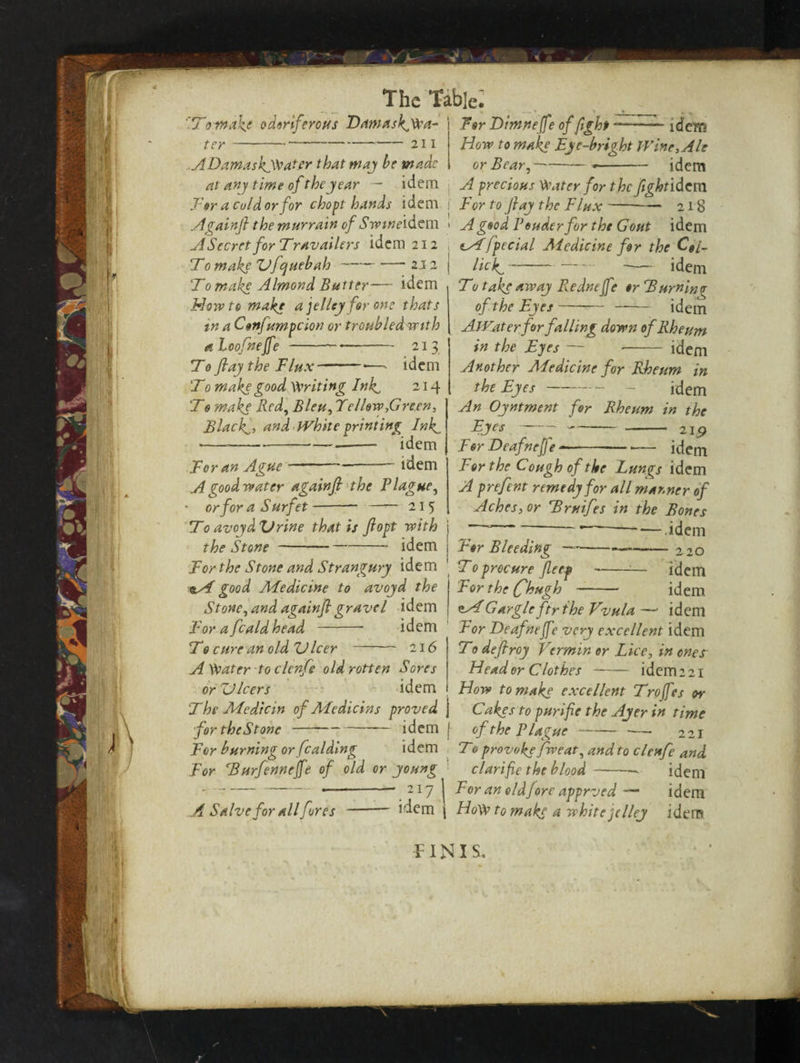 The Table.
To make odoriferous Damask Wa-
ter 211
A Damask Water that may be made
at any time of the year — idem
For a cold or for chopt hands idem
Against the murrain of Swine idem
A Secret for Travailers idem 212
To make Usquebah 212
To make Almond Butter — idem
How to make a jelley for one thats
in a Consumpcion or troubled with
a Loosnesse 213
To stay the Flux idem
To make good Writing Ink 214
To make Red, Bleu, Yellow, Green,
Black, and White printing Ink
idem
For an Ague idem
A good water against the Plague,
or for a Surfet 215
To avoyd Urine that is stopt with
the Stone idem
For the Stone and Strangury idem
A good Medicine to avoyd the
Stone, and against gravel idem
For a scald head idem
To cure an old Ulcer 216
A Water to clense old rotten Sores
or Ulcers idem
The Medicin of Medicins proved
for the Stone idem
For burning or scalding idem
For Bursennesse of old or young
217
A Salve for all sores idem
For Dimnesse of sight idem
How to make Eye-bright Wine, Ale
or Bear, idem
A precious Water for the sight idem
For to stay the Flux 218
A good Pouder for the Gout idem
A special Medicine for the Col-
lick idem
To take away Rednesse or Burning
of the Eyes idem
A Water for falling down of Rheum
in the Eyes — idem
Another Medicine for Rheum in
the Eyes idem
An Oyntment for Rheum in the
Eyes 219
For Deafnesse idem
For the Cough of the Lungs idem
A present remedy for all manner of
Aches, or Bruises in the Bones
idem
For Bleeding 220
To procure sleep idem
For the Chugh idem
A Gargle for the Vvula — idem
For Deafnesse very excellent idem
To destroy Vermin or Lice, in ones
Head or Clothes idem 221
How to make excellent Trosses or
Cakes to purifie the Ayer in time
of the Plague 221
To provoke sweat, and to clense and
clarifie the blood idem
For an old sore apprved — idem
How to make a white jelley idem
FINIS.